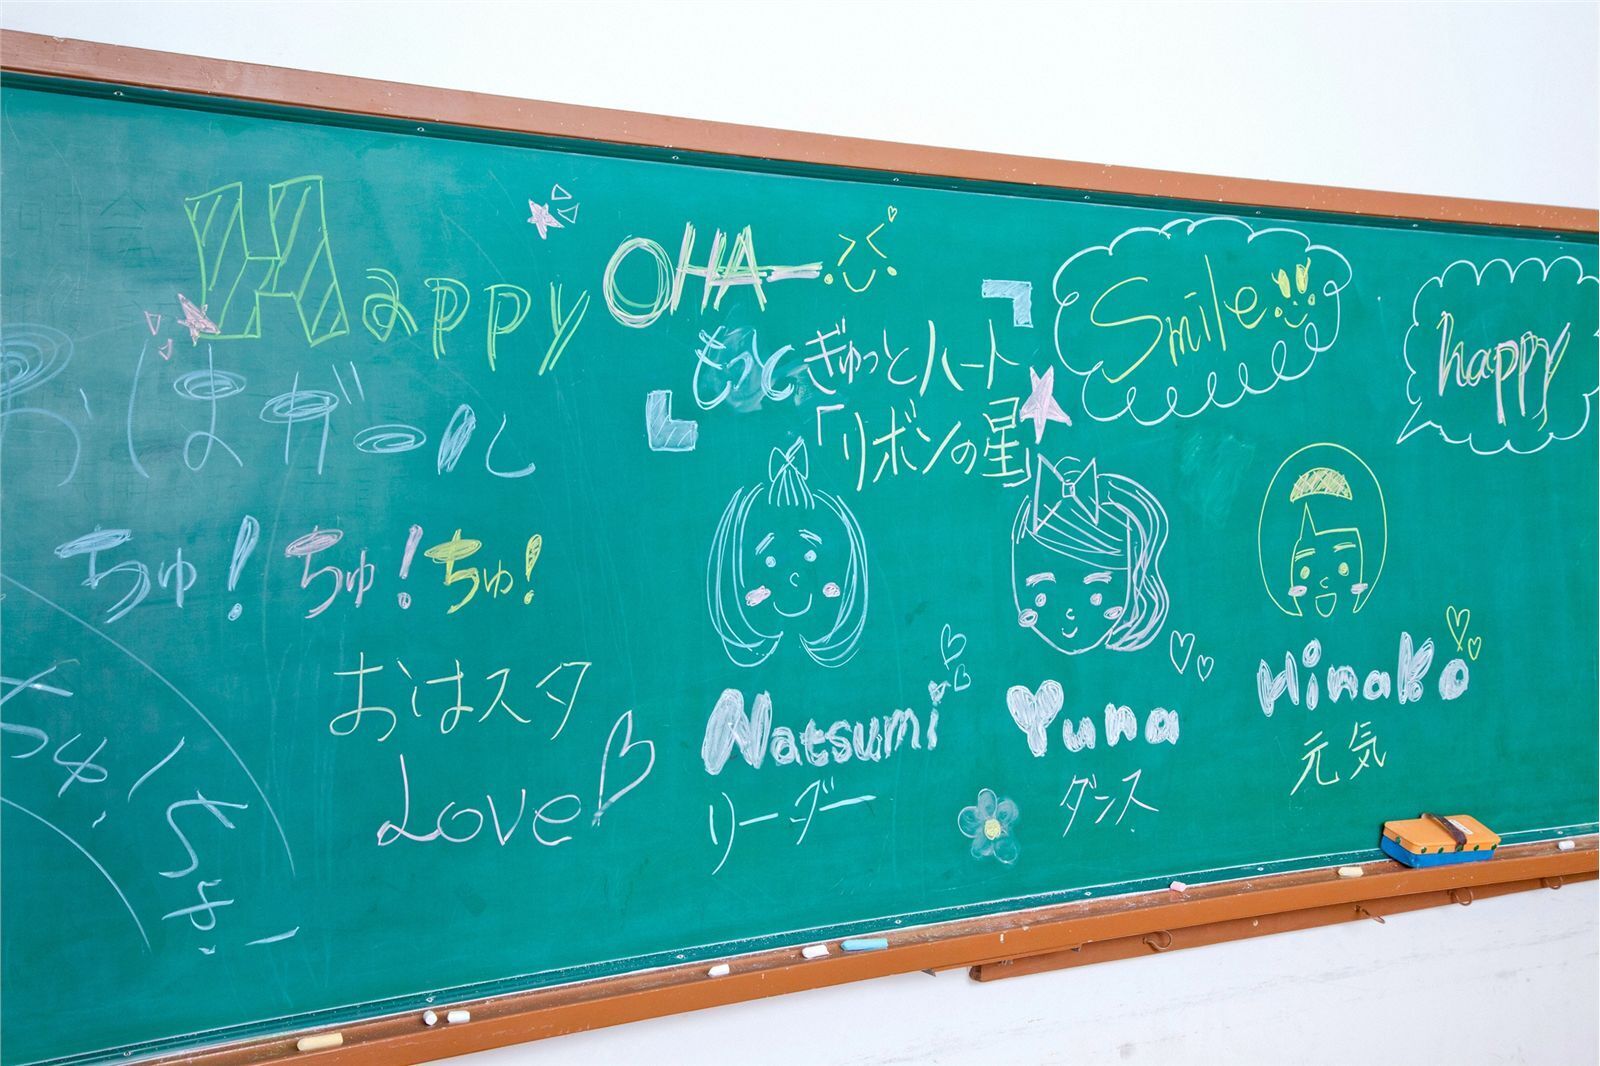 Happy
OHA
おはガール
ちゅ! ちゅ! ちゅ!
おはスタ
LOVE
ちゅ! ちゅ!
もっとぎゅっとハート
「リボンの星」
Smile
happy
Natsumi
リーダー
Yuna
ダンス
Hinako
元気